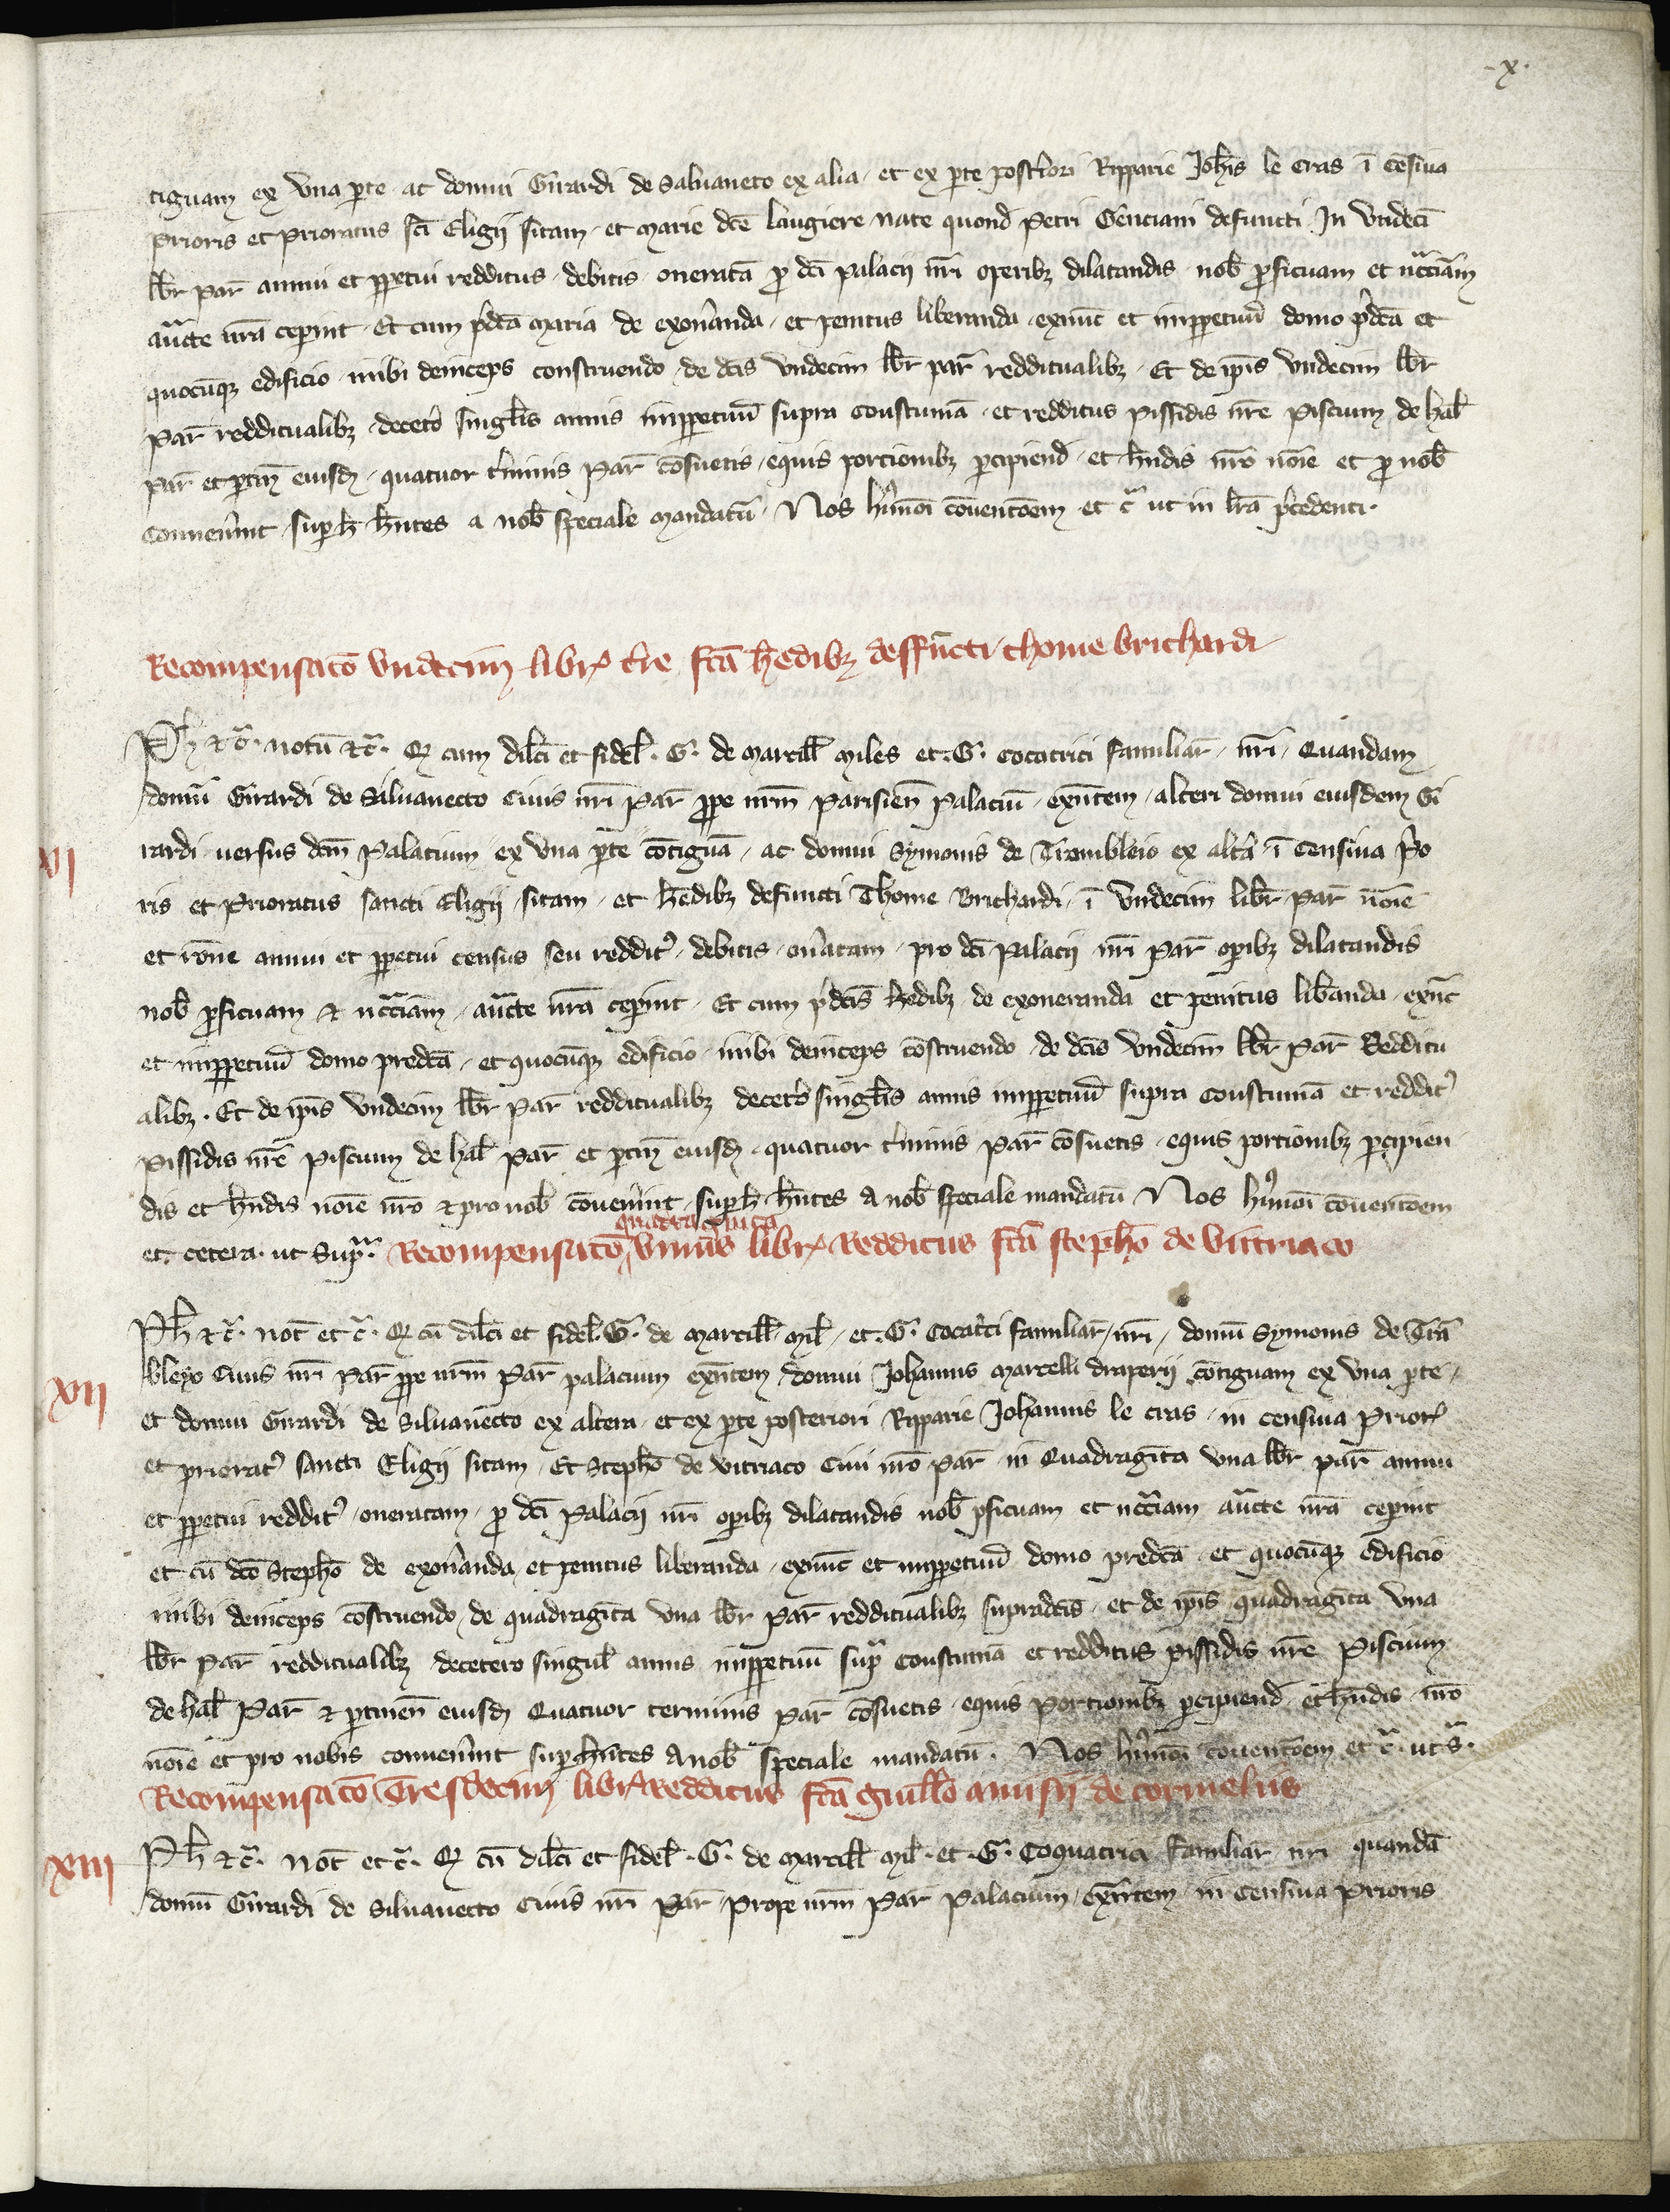 .x.
tiguam ex una ꝑte ac domui Girardi de Saluaneto ex alia et ex ꝑte post̾iori Ripparie Joh̄is le cras ī cēsiua
prioris et prioratus sc̄i Eligij sitam et Marie dc̄e laugiere nate quond̄ Petri Genciani defuncti In undecī
lb̄r par̄ annui et ꝑpetui redditus debitis oneratā ꝓ dc̄i palacij nr̄i operibꝫ dilatandis nob̄ ꝓficuam et nccāiam
auc̄te nrā ceperint Et cum p̄dc̄a Maria de exon̄anda et penitus liberanda exnūc et imꝑpetuū domo p̄dc̄a et
quocūqꝫ edificio inibi deinceps construendo de dc̄is undecim lb̄r par̄ redditualibꝫ Et de ip̄is undecim lb̄r
par̄ redditualibꝫ decet̾o singl̄is annis imꝑpetuū supra coustumā et redditus pissidis nr̄e piscium de hal̄
par̄ et ꝑtin̄ eiusd̄ quatuor t̾minis par̄ cōsuetis equis portionibꝫ ꝑcipiend̄ et hn̄dis nr̄o noīe et ꝓ nob̄
conuen̄int suꝑ h̄ hn̄tes a nob̄ speciale mandatū Nos hꝰmōi cōuentōem et c̄ ut in lrā p̄cedenti
Recompensatō undecim libr̄ t̾re fc̄a h̄edibꝫ deffuncti thome brichardi
Ph̄ ⁊c̄. notū ⁊c̄. Qꝫ cum dilc̄i et fidel̄ .G. de marcill̄ miles et .G. cocatrici familiar̄ nr̄i Quandam
domū Girardi de Siluanecto ciuis nr̄i par̄ ꝓpe nrm̄ parisien̄ palaciū exn̄tem alteri domui eiusdem Gi
rardi uersus dc̄m palacium ex una ꝑte cōtiguā ac domui Symonis de Trambleio ex alt̾a ī censiua p̄o
xi
ris et prioratus sancti Eligij sitam et h̄edibꝫ defuncti Thome Brichardi ī undecim libr̄ par̄ noīe
et rōne annui et ꝑpetui census seu redditꝰ debitis on̄atam pro dc̄i palacij nr̄i par̄ oꝑibꝫ dilatandis
nob̄ ꝓficuam ⁊ nccāiam auc̄te nrā ceperint Et cum p̄dc̄is h̄edibꝫ de exoneranda et penitus lib̄anda exnūc
et imꝑpetuū domo predc̄a et quocūqꝫ edificio inibi deinceps cōstruendo de dc̄is undecim lb̄r par̄ Redditu
alibꝫ. Et de ip̄is undecim lb̄r par̄ redditualibꝫ decet̾o singl̄is annis imꝑpetuū supra coustumā et redditꝰ
pissidis nr̄e piscium de hal̄ par̄ et ꝑtin̄ eiusd̄ quatuor t̾minis par̄ cōsuetis equis portionibꝫ ꝑcipien
dis et hn̄dis noīe nr̄o ⁊ pro nob̄ cōuen̄int suꝑ h̄ hn̄tes a nob̄ speciale mandatū Nos hꝰmōi cōuentōem
et cetera ut supᷓ. Recompensatō quadraginta uniuˢ libr̄ Redditus fc̄a stepho̅ de vitriaco
Ph̄ ⁊c̄. not̄ et c̄. Qꝫ cū dilc̄i et fidel̄ .G. de marcill̄ mil̄ et .G. Cocat̾ci familiar̄ nr̄i domū Symonis de Trā
bleyo ciuis nr̄i par̄ ꝓpe nrm̄ par̄ palacium exn̄tem domui Johannis Marcelli draperij cōtiguam ex una ꝑte
xii
et domui Girardi de Siluanecto ex altera et ex ꝑte posteriori Ripparie Johannis le cras in censiua prior̄
et prioratꝰ sancti Eligij sitam Et Stepho̅ de vitriaco ciui nr̄o par̄ in Quadragīta una lb̄r par̄ annui
et ꝑpetui redditꝰ oneratam ꝓ dc̄i palacij nr̄i oꝑibꝫ dilatandis nob̄ ꝓficuam et nccāiam auc̄te nrā ceperint
et cū dc̄o Stepho̅ de exon̄anda et penitus liberanda exnunc et imꝑpetuū domo predc̄a et quocūqꝫ edificio
inibi deinceps cōstruendo de quadragīta una lb̄r par̄ redditualibꝫ supradc̄is et de ip̄is quadragīta una
lb̄r par̄ redditualibꝫ decetero singul̄ annis imꝑpetuū supᷓ coustumā et redditus pissidis nr̄e piscium
de hal̄ par̄ ⁊ ꝑtinen̄ eiusd̄ Quatuor terminis par̄ cōsuetis equis portionibꝫ ꝑcipiend̄ et hn̄dis nr̄o
noīe et pro nobis conuen̄int suꝑ h̄ hn̄tes a nob̄ speciale mandatū. Nos hꝰmōi cōuentōem et c̄. ut sᷓ.
Recompensatō Tresdecim libr̄ Redditus fc̄a guillo̅ anisij de cormeliis
xiii
Ph̄ ⁊c̄. not̄ et c̄. Qꝫ cū dilc̄i et fidel̄ .G. de marcill̄ mil̄ et .G. Coquatrici familiar̄ nr̄i quandā
domū Girardi de Siluanecto ciuis nr̄i par̄ prope nrm̄ par̄ palacium exn̄tem in censiua prioris